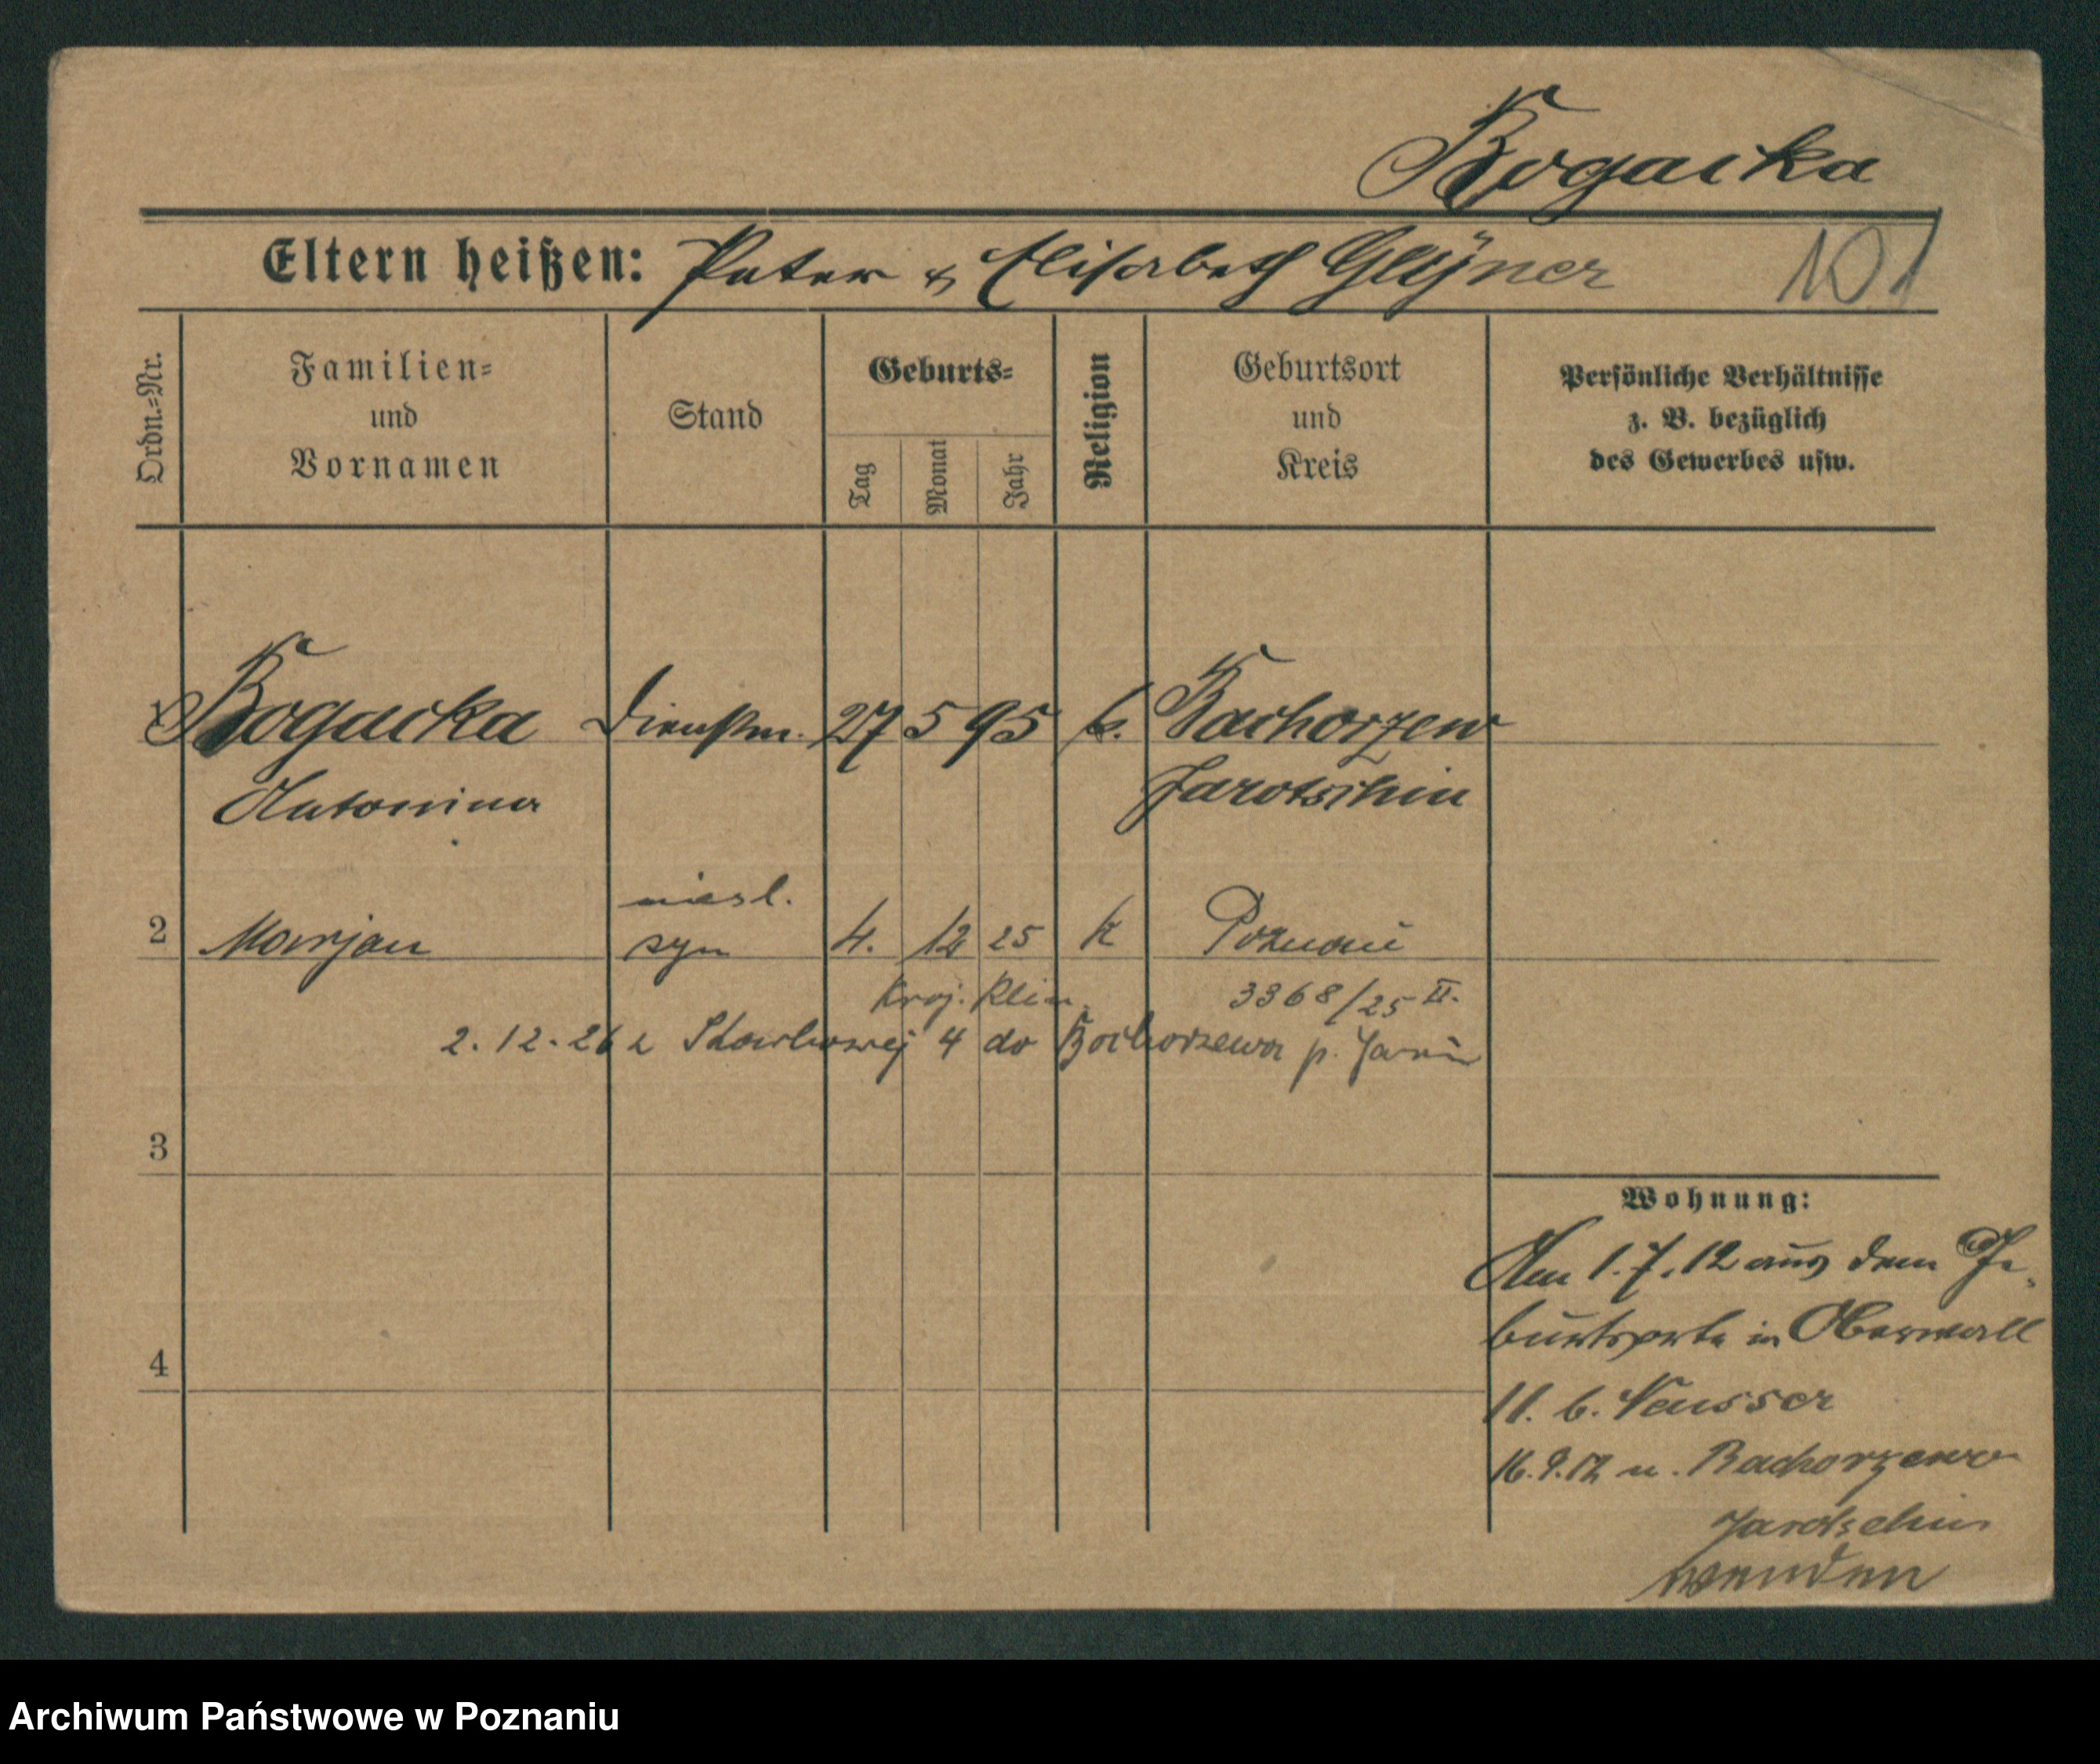 Bogacka
Eltern heißen: Peter & Elisabeth Glÿner
101
Ordn.=Nr.
Familien=
und
Vornamen
Stand
Geburts=
Tag
Monat
Jahr
Religion
Geburtsort
und
Kreis
Persönliche Verhältnisse
z. B. bezüglich
des Gewerbes usw.
1 Bogacka Dienstm. 27 5 95 k. Bachorzew
Antonina Jarotschin
niesl.
2 Marjan syn 4. 12 25 k Poznań
Kroj. Klin. 3368/25 II.
2.12.26 z 4 do Bachorzewa p. Jarocin
3
4
Wohnung:
Am 1.7.12 aus dem Ge-
burtsorte in Oberwall
11. b. Neusser
16.9.12 n. Bachorzewo
Jarotschin
wenden
Archiwum Państwowe w Poznaniu